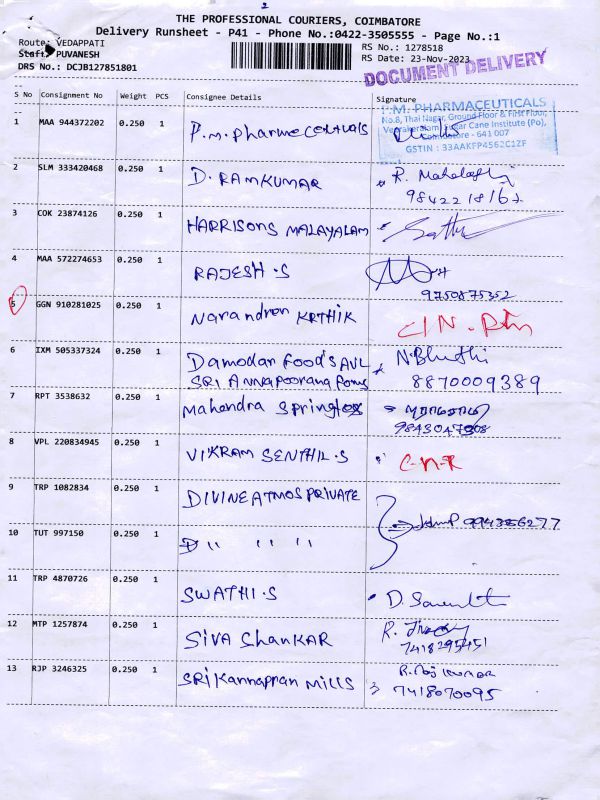 2
THE PROFESSIONAL COURIERS, COIMBATORE
Delivery Runsheet - P41 - Phone No.:0422-3505555 - Page No.:1
Route: VEDAPPATI
RS No.: 1278518
Staff: PUVANESH
RS Date: 23-Nov-2023
DRS No.: DCJB127851801
DOCUMENT DELIVERY
S No Consignment No Weight PCS Consignee Details Signature
1 MAA 944372202 0.250 1 P.M. Pharmaceuticals
P.M. PHARMACEUTICALS
No.8, Thai Nagar, Ground Floor & First Floor,
Veerakeralam, Sugar Cane Institute (Po),
Coimbatore - 641 007
GSTIN : 33AAKFP4562C1ZF
2 SLM 333420468 0.250 1 D. RAMKUMAR R. Mahalaxmi
3 COK 23874126 0.250 1 HARRISONS MALAYALAM
4 MAA 572274653 0.250 1 RAJESH.S
9750875352
5 GGN 910281025 0.250 1 Narandran KRTHIK
6 IXM 505337324 0.250 1 Damodar Food's AVL N.Bhuthi
SRI Annapoorana Foms 8870009389
7 RPT 3538632 0.250 1 Mahendra Springlox
8 VPL 220834945 0.250 1 VIKRAM SENTHIL.S C-N-R
9 TRP 1082834 0.250 1 DIVINEATMOS PRIVATE
10 TUT 997150 0.250 1 D '' '' '' ''
11 TRP 4870726 0.250 1 SWATHI.S D.
12 MTP 1257874 0.250 1 Siva Shankar R.
7418295451
13 RJP 3246325 0.250 1 SRI Kannapran Mills R. Raj kumar
7418070095